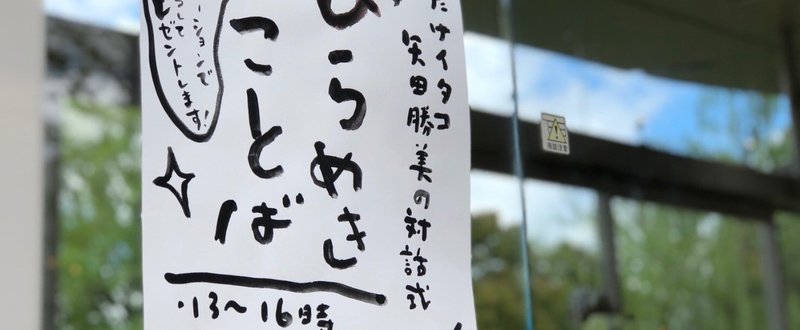 だけイタコ 矢田勝美の対話式
ひらめき
ことば
ーションで
して
ゼントします!
・13〜16時